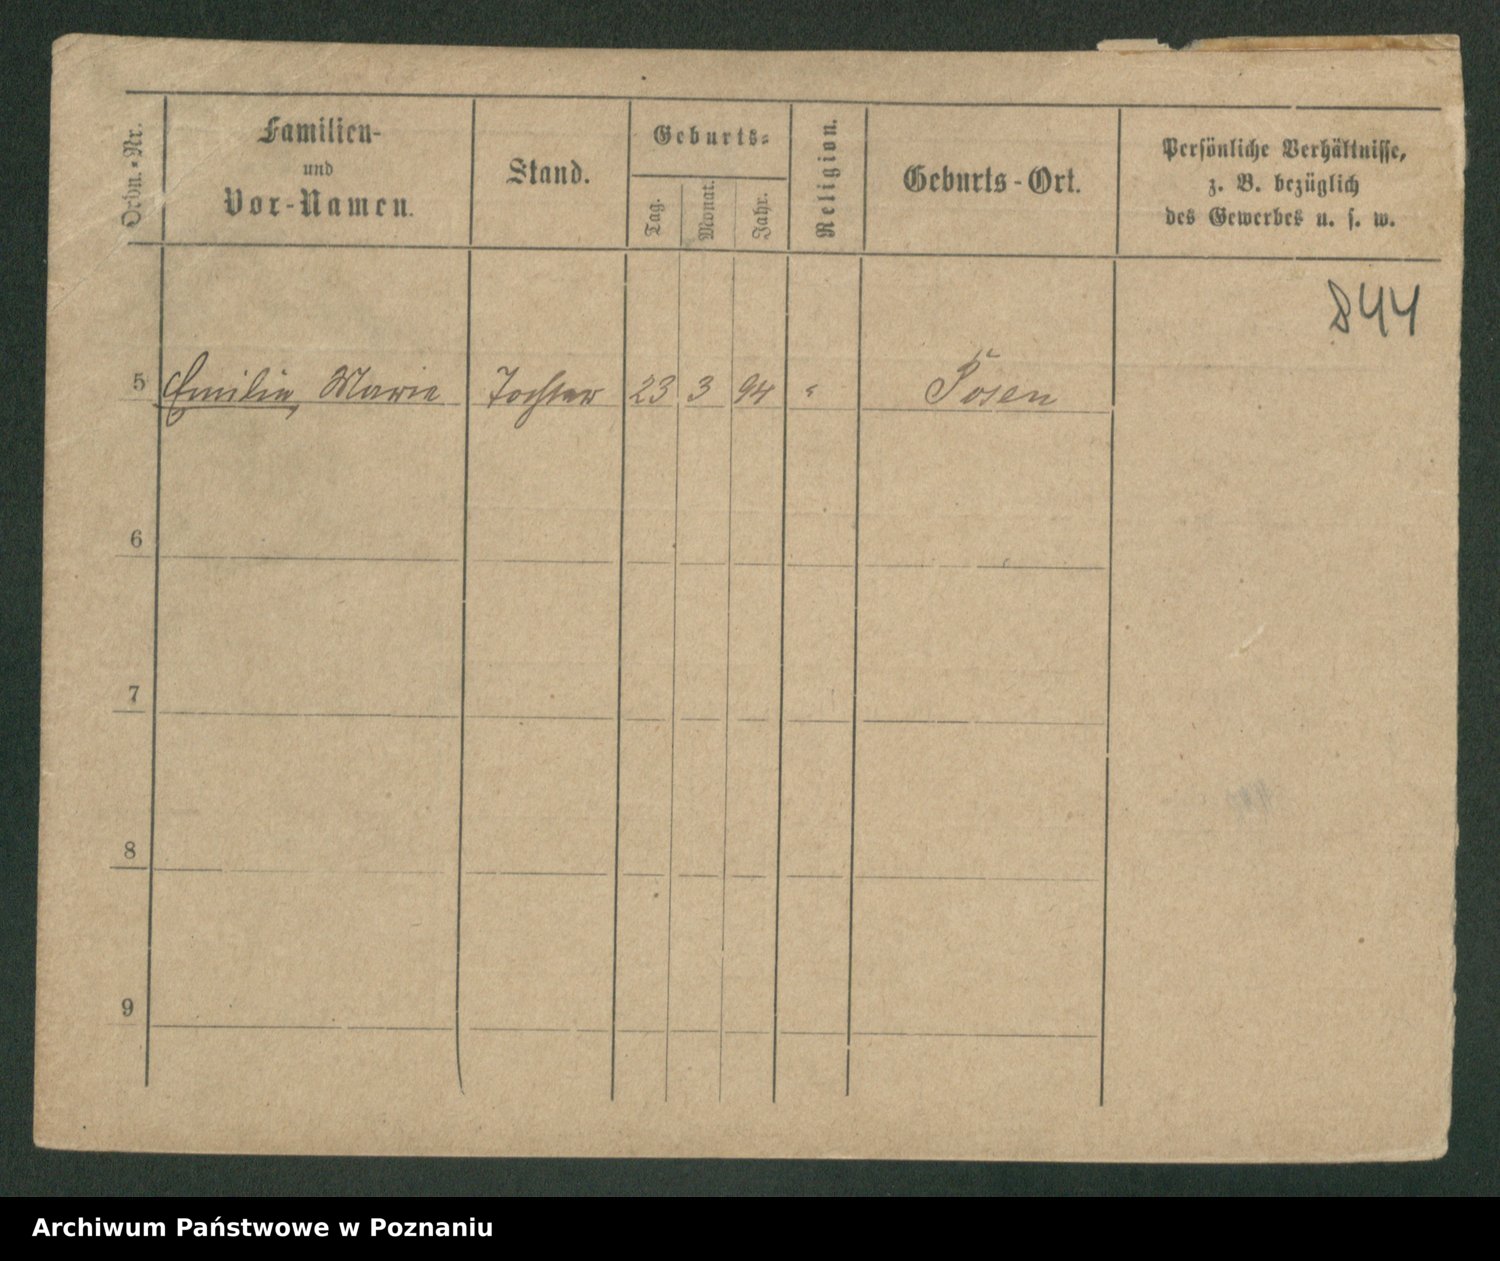 Ordn.-Nr.
Familien-
und
Vor-Namen.
Stand.
Geburts-
Tag.
Monat.
Jahr.
Religion.
Geburts-Ort.
Persönliche Verhältnisse,
z. B. bezüglich
des Gewerbes u. s. w.
844
5 Emilie, Marie Tochter 23 3 94 " Posen
6
7
8
9
Archiwum Państwowe w Poznaniu